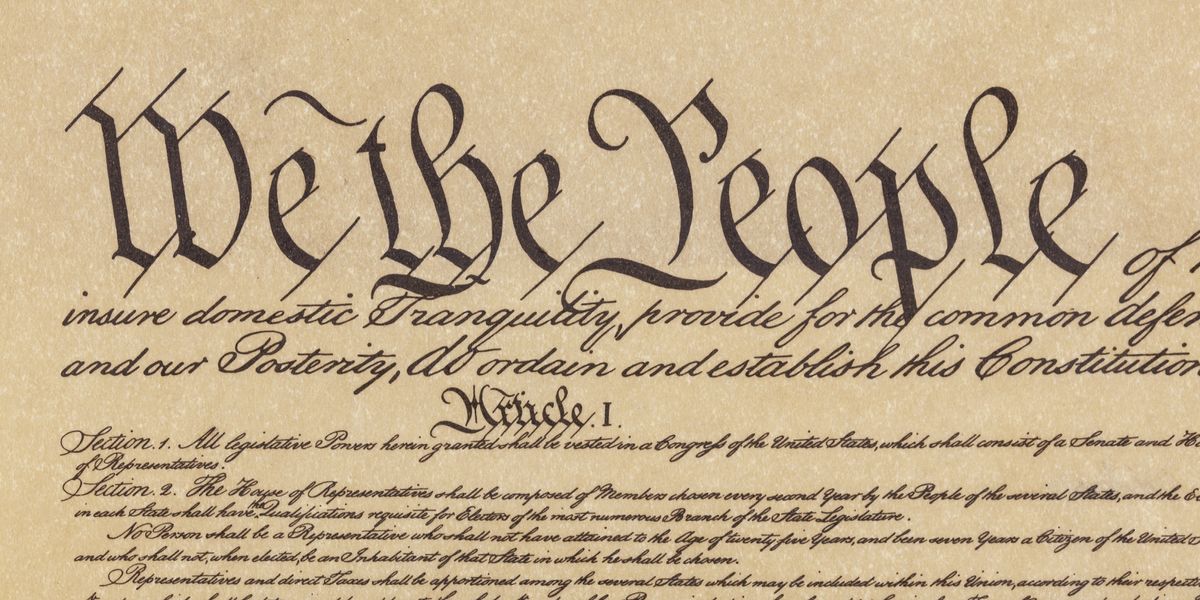 We the People of
insure domestic Tranquility, provide for the common defen
and our Posterity, do ordain and establish this Constitution
Article. I.
Section. 1. All legislative Powers herein granted shall be vested in a Congress of the United States, which shall consist of a Senate and Ho
of Representatives.
Section. 2. The House of Representatives shall be composed of Members chosen every second Year by the People of the several States, and the
in each State shall have the Qualifications requisite for Electors of the most numerous Branch of the State Legislature.
No Person shall be a Representative who shall not have attained to the Age of twenty five Years, and been seven Years a Citizen of the United
and who shall not, when elected, be an Inhabitant of that State in which he shall be chosen.
Representatives and direct Taxes shall be apportioned among the several States which may be included within this Union, according to their